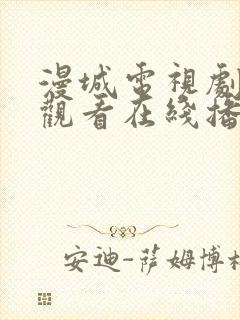 漫城電視劇
觀看在綫播
安迪-萨姆博格